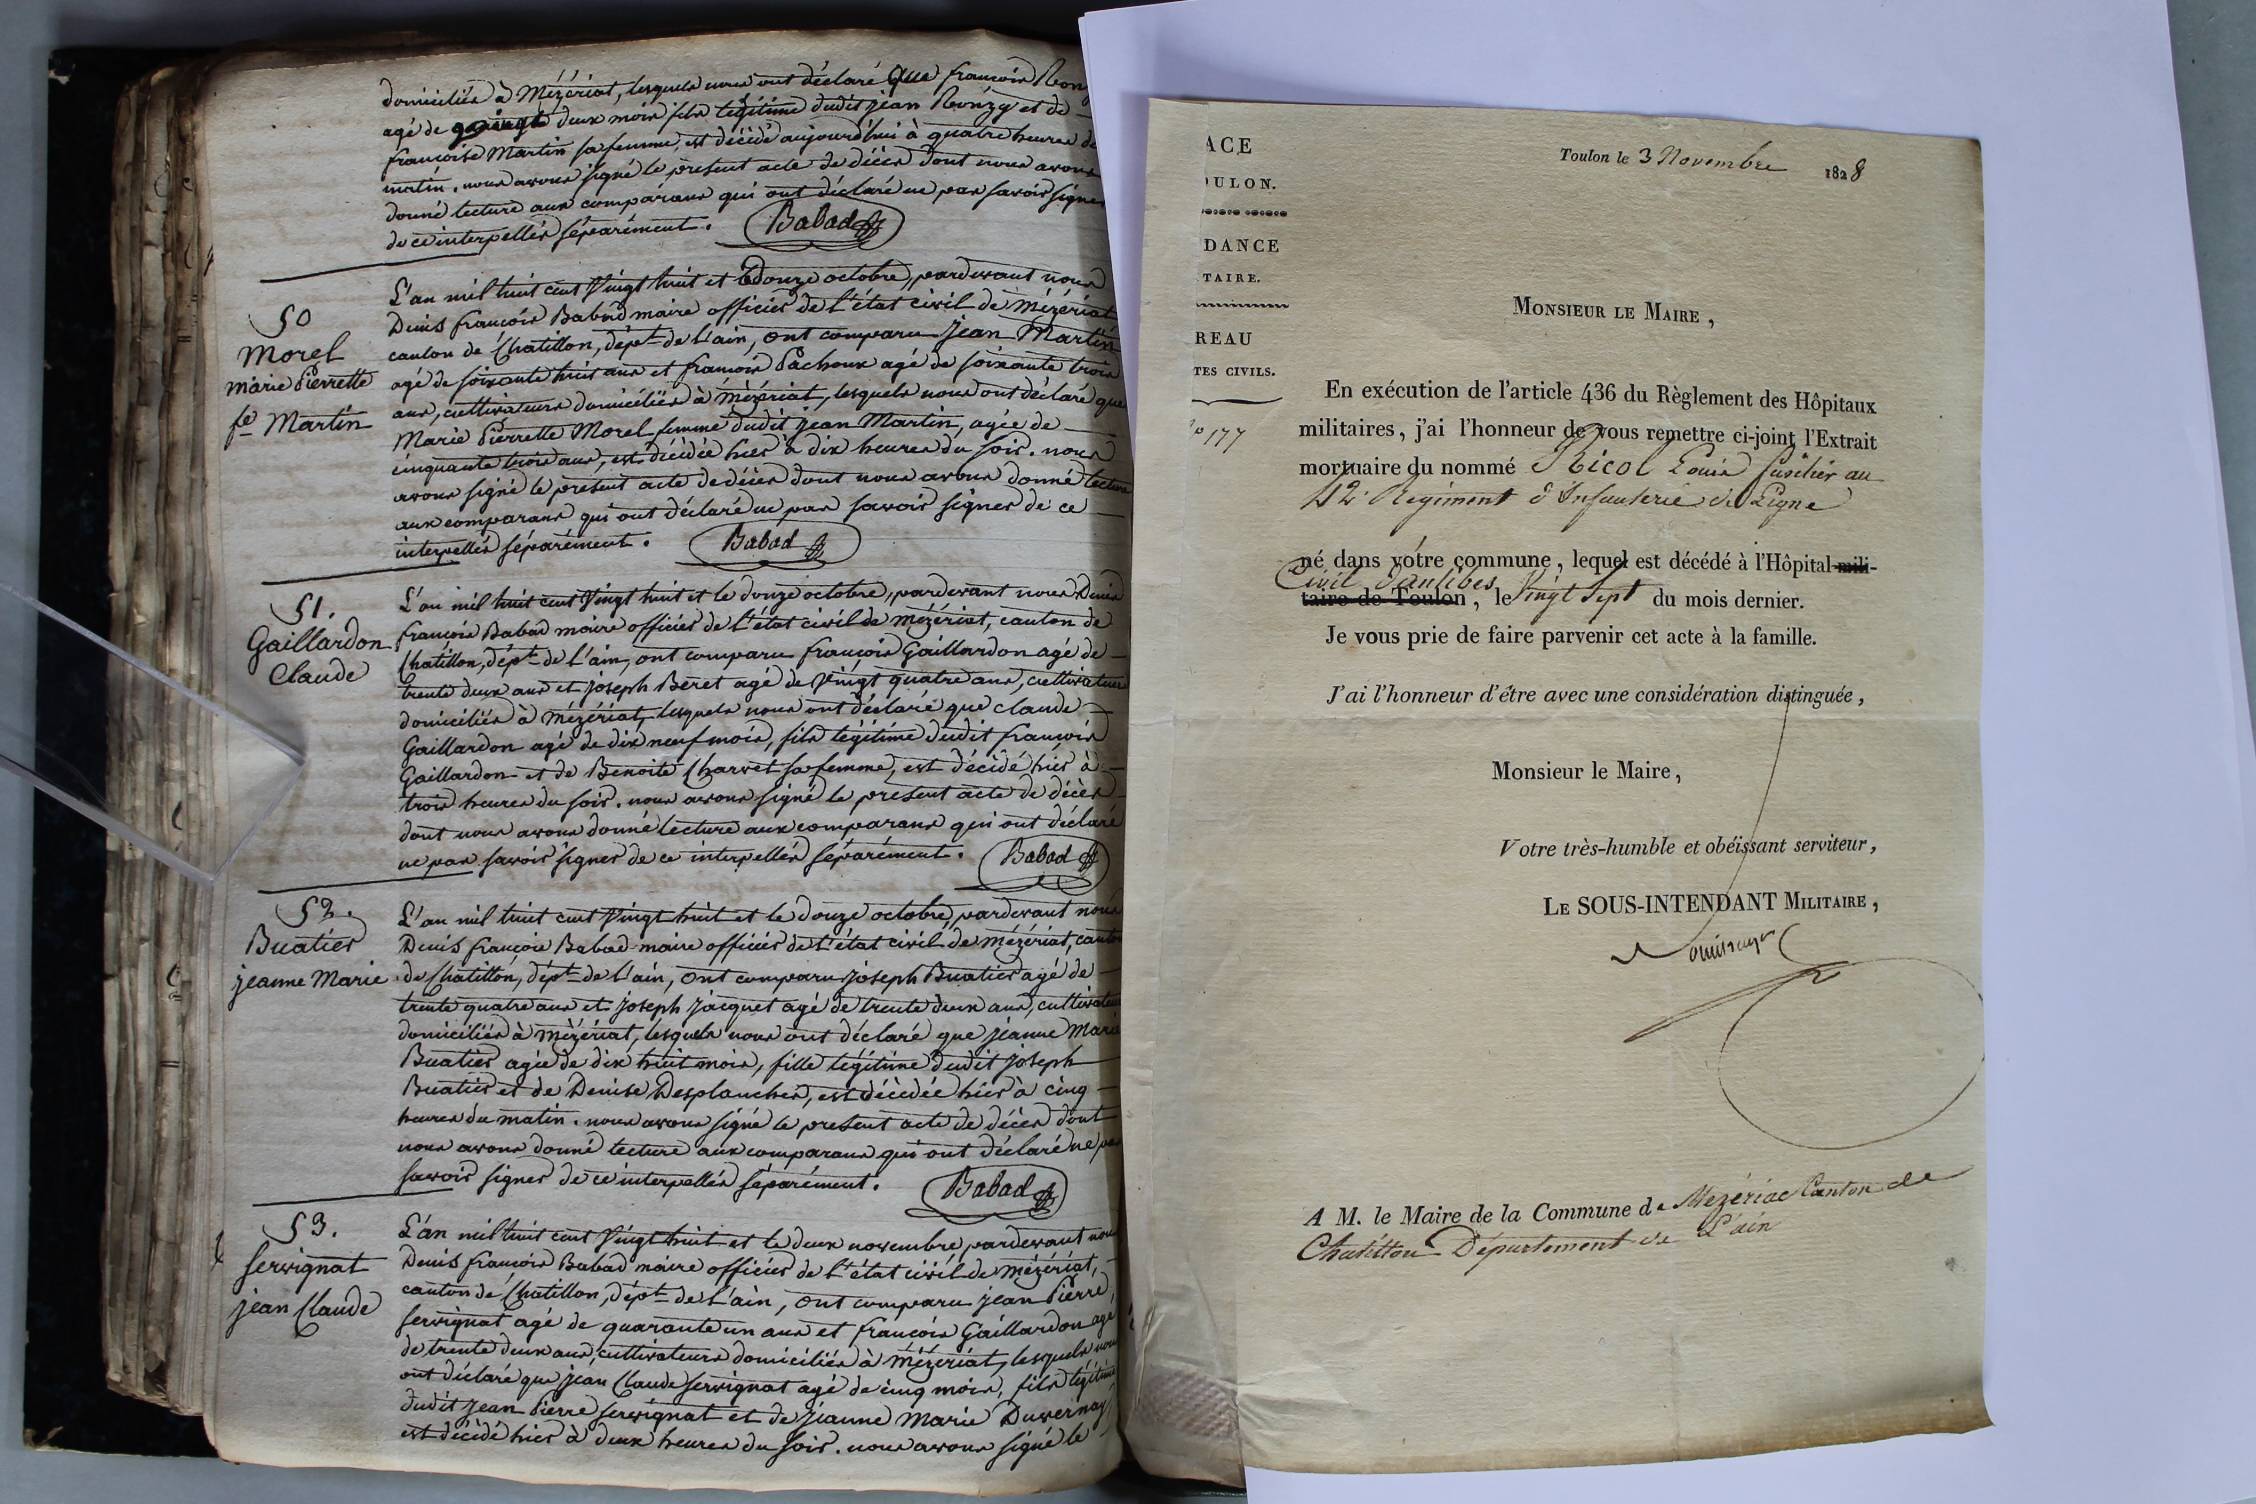 domiciliés à Mézériat, lesquels nous ont déclaré que françois
agé de deux mois fils légitime dudit jean Ronzy et de
françoise Martin sa femme, est décédé aujourd'hui à quatre heures de
matin. nous avons signé le présent acte de décès dont nous avons
donné lecture aux comparans qui ont déclaré ne pas savoir signer
de ce interpellés séparément. Babad
50
Morel
marie Pierrette
fe Martin
L'an mil huit cent vingt huit et douze octobre, pardevant nous
Denis françois Babad maire officier de l'état civil de Mézériat
canton de Chatillon, dépt de l'ain, ont comparu jean Martin
agé de soixante huit ans et françois Pachoux agé de soixante trois
ans, cultivateurs domiciliés à mézériat, lesquels nous ont déclaré que
Marie Pierrette Morel femme dudit jean Martin, agée de
cinquante trois ans, est décédée hier à dix heures du soir. nous
avons signé le présent acte de décès dont nous avons donné lecture
aux comparans qui ont déclaré ne pas savoir signer de ce
interpellés séparément. Babad
51.
Gaillardon
Claude
L'an mil huit cent vingt huit et le douze octobre, pardevant nous Denis
françois Babad maire officier de l'état civil de mézériat, canton de
Chatillon, dépt de l'ain, ont comparu françois Gaillardon agé de
trente deux ans et joseph Beret agé de vingt quatre ans, cultivateurs
domiciliés à mézériat, lesquels nous ont déclaré que claude
Gaillardon agé de dix neuf mois, fils légitime dudit françois
Gaillardon et de Benoite Charvet sa femme, est décédé hier à
trois heures du soir. nous avons signé le présent acte de décès
dont nous avons donné lecture aux comparans qui ont déclaré
ne pas savoir signer de ce interpellés séparément. Babad
52.
Buatier
jeanne Marie
L'an mil huit cent vingt huit et le douze octobre, pardevant nous
Denis françois Babad maire officier de l'état civil de mézériat, canton
de Chatillon, dépt de l'ain, ont comparu joseph Buatier agé de
trente quatre ans et joseph jacquet agé de trente deux ans, cultivateurs
domiciliés à mézériat, lesquels nous ont déclaré que jeanne Marie
Buatier agée de dix huit mois, fille légitime dudit joseph
Buatier et de Denise Desplanches, est décédée hier à cinq
heures du matin. nous avons signé le présent acte de décès dont
nous avons donné lecture aux comparans qui ont déclaré ne pas
savoir signer de ce interpellés séparément. Babad
53.
servignat
jean Claude
L'an mil huit cent vingt huit et le deux novembre, pardevant nous
Denis françois Babad maire officier de l'état civil de mézériat,
canton de Chatillon, dépt de l'ain, ont comparu jean Pierre
servignat agé de quarante un ans et françois Gaillardon agé
de trente deux ans, cultivateurs domiciliés à mézériat, lesquels nous
ont déclaré que jean Claude servignat agé de cinq mois, fils légitime
dudit jean Pierre servignat et de jeanne Marie Duvernay
est décédé hier à deux heures du soir. nous avons signé le
ACE
OULON.
DANCE
TAIRE.
REAU
TES CIVILS.
No 177
Toulon le 3 Novembre 1828
MONSIEUR LE MAIRE,
En exécution de l'article 436 du Règlement des Hôpitaux
militaires, j'ai l'honneur de vous remettre ci-joint l'Extrait
mortuaire du nommé Ricol Louis fusilier au
42e Régiment d'Infanterie de Ligne
né dans votre commune, lequel est décédé à l'Hôpital mili-
Civil d'antibes
taire de Toulon, le Vingt Sept du mois dernier.
Je vous prie de faire parvenir cet acte à la famille.
J'ai l'honneur d'être avec une considération distinguée,
Monsieur le Maire,
Votre très-humble et obéissant serviteur,
LE SOUS-INTENDANT MILITAIRE,
A M. le Maire de la Commune de Mezériac Canton de
Chatillon Département de L'ain